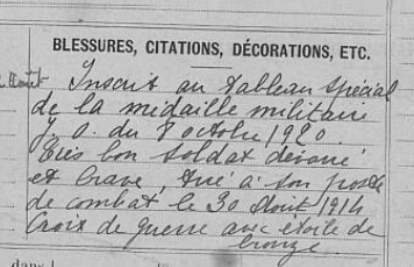 BLESSURES, CITATIONS, DÉCORATIONS, ETC.
Inscrit au tableau spécial
de la médaille militaire
J. O. du 8 octobre 1920
Très bon soldat dévoué
et brave, tué à son poste
de combat le 30 Août 1914
Croix de guerre avec étoile de
bronze